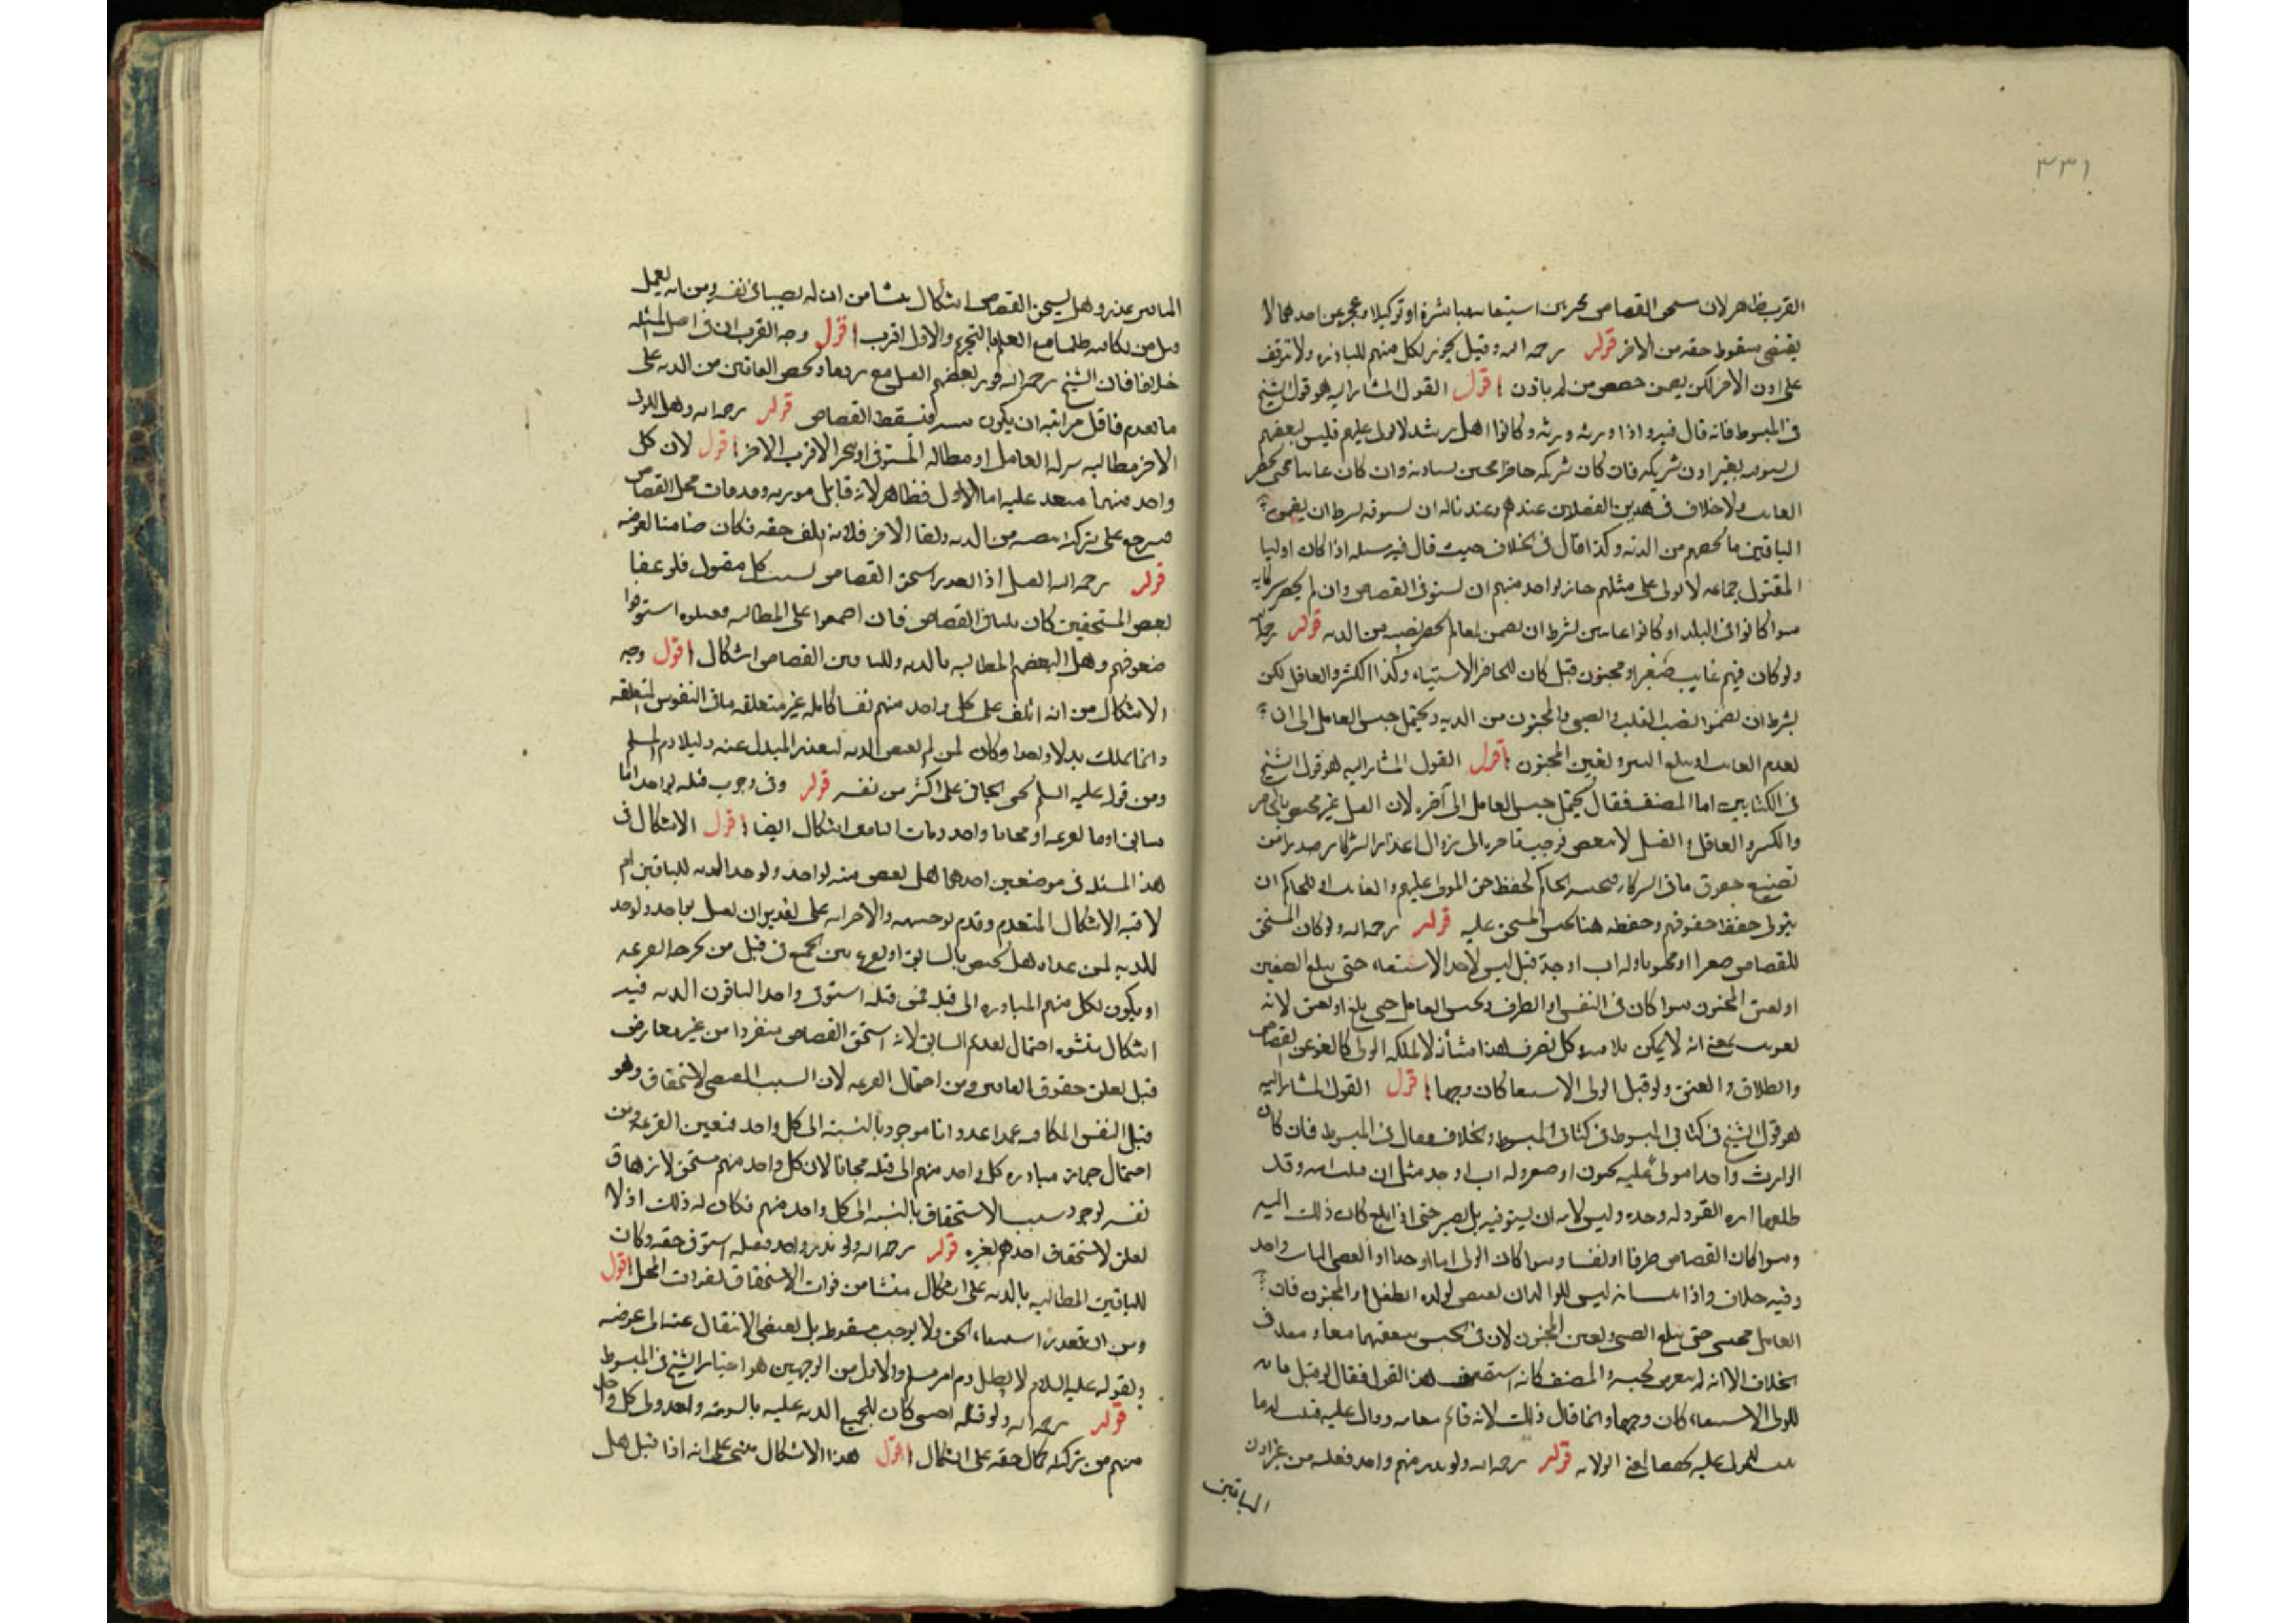 ٣٣١
القرب ظاهر لان مستحق القصاص مخير بين استيفائه مباشرة او توكيلا وعجزه عن احدهما لا
يقتضى سقوط حقه من الاخر قوله رحمه الله وقيل يجوز لكل منهم المبادرة ولا تتوقف
على اذن الاخر لكن يضمن حصص من لم ياذن اقول القول المشار اليه هو قول الشيخ
فى المبسوط فانه قال فيه واذا ورثه ورثة وكانوا اهل رشد لا يولى عليهم فليس لبعضهم
ان يستوفيه بغير اذن شريكه فان كان شريكه حاضرا حتى يستاذنه وان كان غايبا حتى يحضر
الغايب ولا خلاف فى هذين الفصلين عندهم وعندنا له ان يستوفيه بشرط ان يضمن
الباقين ما يخصهم من الدية وكذا قال فى الخلاف حيث قال فيه مسئلة اذا كان اوليا
المقتول جماعة لا يولى على مثلهم جاز لواحد منهم ان يستوفى القصاص وان لم يحضر شركايه
سوا كانوا فى البلد او كانوا غايبين بشرط ان يضمن لمن لم يحضر نصيبه من الدية قوله رحمه الله
ولو كان فيهم غايب او صغير او مجنون قيل كان للحاضر الاستيفاء وكذا الكبير والعاقل لكن
بشرط ان يضمنوا نصيب الغايب والصبى والمجنون من الدية ويحتمل حبس القاتل الى ان
يقدم الغايب او يبلغ الصبى ويفيق المجنون اقول القول المشار اليه هو قول الشيخ
فى الكتابين اما المصنف فقال يحتمل حبس القاتل الى آخره لان القتل غير مختص بالحاضر
والكبير والعاقل والقتل لا يتبعض فوجب تاخيره الى زوال اعذار الشركا
تضييع حقوق باقى الشركا فيحبسه الحاكم لحفظ حق المولى عليهم والغايب اذ للحاكم ان
يتولى حفظ حقوقهم وحفظه هنا بحبس المستحق عليه قوله رحمه الله ولو كان المستحق
للقصاص صغيرا او مجنونا وله اب او جد قيل ليس لاحد الاستيفاء حتى يبلغ الصغير
او يفيق المجنون سوا كان فى النفس او الطرف ويحبس القاتل حتى يبلغ او يفيق لانه
تفويت بمعنى انه لا يمكن تلافيه وكل تصرف هذا شأنه لا يملكه الولى كالعفو عن القصاص
والطلاق والعتق ولو قيل للولى الاستيفا كان وجها اقول القول المشار اليه
هو قول الشيخ فى كتابى المبسوط فى كتابى المبسوط والخلاف فقال فى المبسوط فان كان
الوارث واحدا مولى عليه بجنون او صغر وله اب او جد مثل ان قتلت امه وقد
طلقها ابوه القود له وحده وليس لابيه ان يستوفيه بل يصبر حتى اذا بلغ كان ذلك اليه
وسوا كان القصاص طرفا او نفسا وسوا كان الولى ابا او جدا او الوصى الباب واحد
وفيه خلاف واذا ليس للوالد ان يقتص لولده الطفل او المجنون فان
القاتل يحبس حتى يبلغ الصبى ويفيق المجنون لان فى الحبس منفعتهما معا و
الخلاف الا انه لم يتعرض لحبسه والمصنف كانه استضعف هذا القول فقال لو قيل بان
للولى الاستيفاء كان وجها وانما قال ذلك لانه قائم مقامه ووال عليه فيثبت له ما
للمولى عليه تحقيقا لمعنى الولاية قوله رحمه الله ولو بدر منهم واحد فقتله من غير اذن
الباقين
الباقين عزر وهل يستحق القصاص اشكال ينشا من ان له نصيبا فى نفسه ومن انه يعمل
قتل من يكافيه ظلما مع العلم بالتحريم والاول اقرب اقول وجه القرب ان فى اصل المسئله
خلافا فان الشيخ رحمه الله جوز لبعضهم القتل مع ويخص الباقين من الدية على
ما تقدم فاقل مراتبه ان يكون شبهه فيسقط القصاص قوله رحمه الله وهل للولى
الاخر مطالبة تركة القاتل او مطالبة المستوفى او يتخير الاقرب الاخر اقول لان كل
واحد منهما متعد عليه اما الاول فظاهر لانه قاتل مورثه وقد مات محل القصاص
فيرجع على تركته بنصيبه من الدية واما الاخر فلانه اتلف حقه فكان ضامنا لعوضه
قوله رحمه الله القتل اذا استحق القصاص بسبب كل مقتول فلو عفا
بعض المستحقين كان للباقى القصاص فان اجتمعوا على المطالبه فقتلوه استوفوا
حقوقهم وهل لبعضهم المطالبه بالدية وللباقين القصاص اشكال اقول وجه
الاشكال من انه اتلف على كل واحد منهم نفسا كامله غير متعلقه بباقى النفوس المتعلقه
ومن قوله عليه السلم لا يجنى الجانى على اكثر من نفسه قوله وفى وجوب قتله لواحد اما
بسابق او بالقرعه او مجانا واخذ ديات الباقين اشكال ايضا اقول الاشكال فى
هذه المسئله فى موضعين احدهما هل يقتص منه لواحد ويوخذ الدية للباقين ام
لا فيه الاشكال المتقدم وقد تقدم توجيهه والاخر انه على تقدير ان يقتل بواحد ويوخذ
الدية لمن عداه هل يختص بالسابق او يقرع بين الجميع فى قتل من يخرجه القرعه
او يكون لكل منهم المبادره الى قتله فمن قتله استوفى واخذ الباقون الدية فيه
اشكال ينشو من احتمال تقديم السابق لانه استحق القصاص منفردا من غير معارض
قبل تعلق حقوق الباقين ومن احتمال القرعه لان السبب المقتضى للاستحقاق وهو
قتل النفس المكافيه عمدا عدوانا موجود بالنسبة الى كل واحد فتعين القرعه ومن
احتمال جواز مبادره كل واحد منهم الى قتله مجانا لان كل واحد منهم مستحق لازهاق
نفسه لوجود سبب الاستحقاق بالنسبه الى كل واحد منهم فكان له ذلك اذ لا
تعلق لاستحقاق احدهم بغيره قوله رحمه الله ولو بدر واحد فقتله استوفى حقه وكان
للباقين المطالبه بالدية على اشكال ينشا من فوات الاستحقاق لفوات المحل اقول
ومن ان تعذر استيفاء الحق لا يوجب سقوطه بل يقتضى الانتقال عنه الى عوضه
ولقوله عليه السلام لا يطل دم امرء مسلم والاول من الوجهين هو اختيار الشيخ فى المبسوط
قوله رحمه الله ولو قتله اجنبى كان للجميع الدية عليه بالسوية وياخذ ولى كل واحد
منهم من تركته كمال حقه على اشكال اقول هذا الاشكال مبنى على انه اذا قتل هل